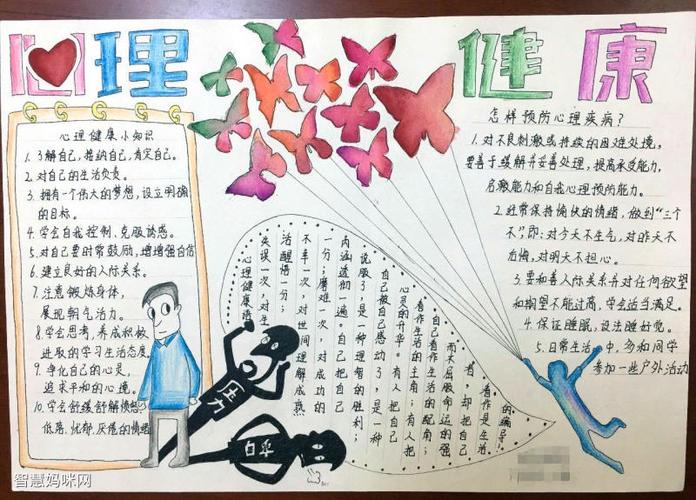 心理健康
心理健康小知识
1.了解自己,接纳自己,肯定自己。
2.对自己的生活负责。
3.拥有一个伟大的梦想,设立明确
的目标。
4.学会自我控制、克服诱惑。
5.对自己要时常鼓励,增增强自信
6.建立良好的人际关系。
7.注意锻炼身体,
展现朝气活力。
8.学会思考,养成积极
进取的学习生活态度
9.净化自己的心灵,
追求平和的心境。
10.学会舒缓纾解愤怒、
低落、忧郁、厌倦的情绪
怎样预防心理疾病?
1.对不良刺激或持续的困难处境,
要善于缓解并妥善处理,提高承受能力,
忍耐能力和自我心理预防能力。
2.经常保持愉快的情绪,做到“三个
不”,即:对今天不生气,对昨天不
后悔,对明天不担心。
3.要和善人际关系并对任何欲望
和期望不能过高,学会适当满足。
4.保证睡眠,设法睡好觉。
5.日常生活中,多和同学
参加一些户外活动
心理健康语
失误一次,对生
活醒悟一分;
不幸一次,对世间理解成熟
一分;磨难一次,对成功的
内涵透彻一遍。自己把自己
说服了,是一种理智的胜利;
自己被自己感动了,是一种
心灵的升华。有人把自己
看作生活的主角;有人把
自己看作生活的配角;
而不屈服命运的强
者,却把自己
看作是生活
的编导。
压力
自卑
智慧妈咪网